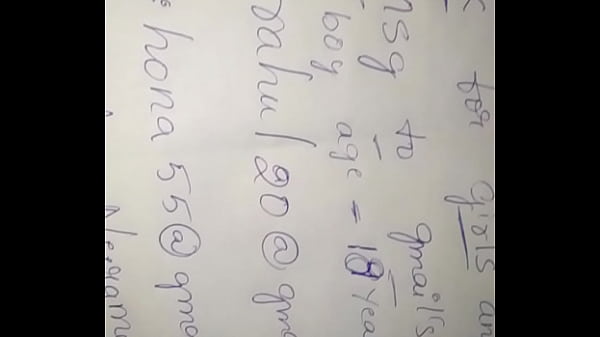 for girls an
msg to gmail's
boy age = 18 yea
ahul 20@gm
hona 55@gma